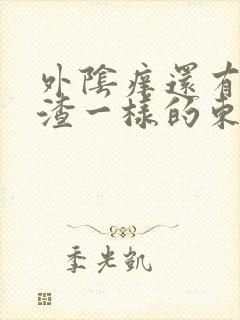 外陰痒還有
渣一樣的東
季光凱